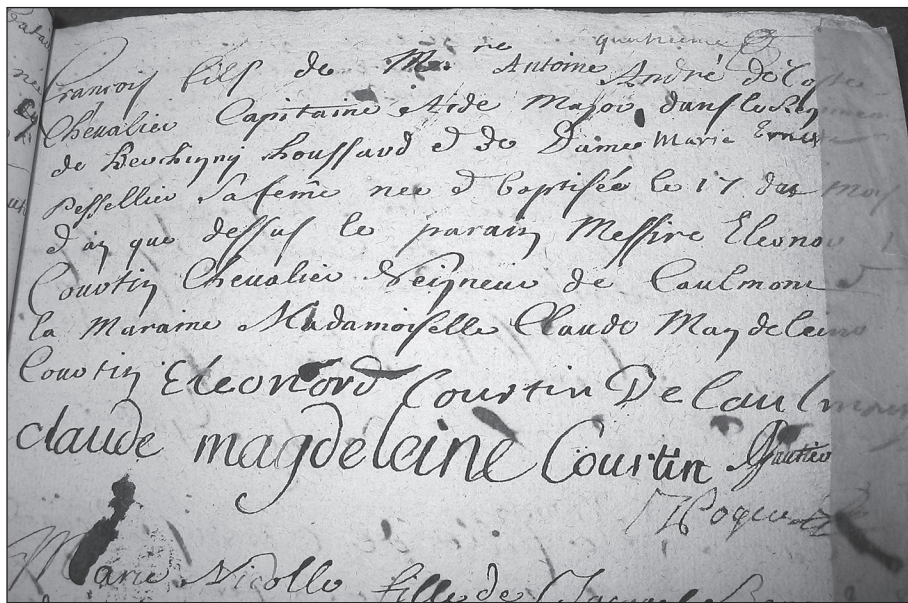 quatrieme
françois fils de Mre Antoine André de Coste
Chevalier Capitaine Aide Major dans le Regimen
de Berchigny houssard et de Dame Marie
pessellier sa feme nee et baptisée le 17 des moy
et an que dessus le parain Messire Eleonor
Courtin Chevalier Seigneur de Caulmont et
la Maraine Madamoiselle Claude Magdeleine
Courtin Eleonord Courtin De Caulmont
claude magdeleine Courtin Gautier
Marie Nicolle fille de Jacques